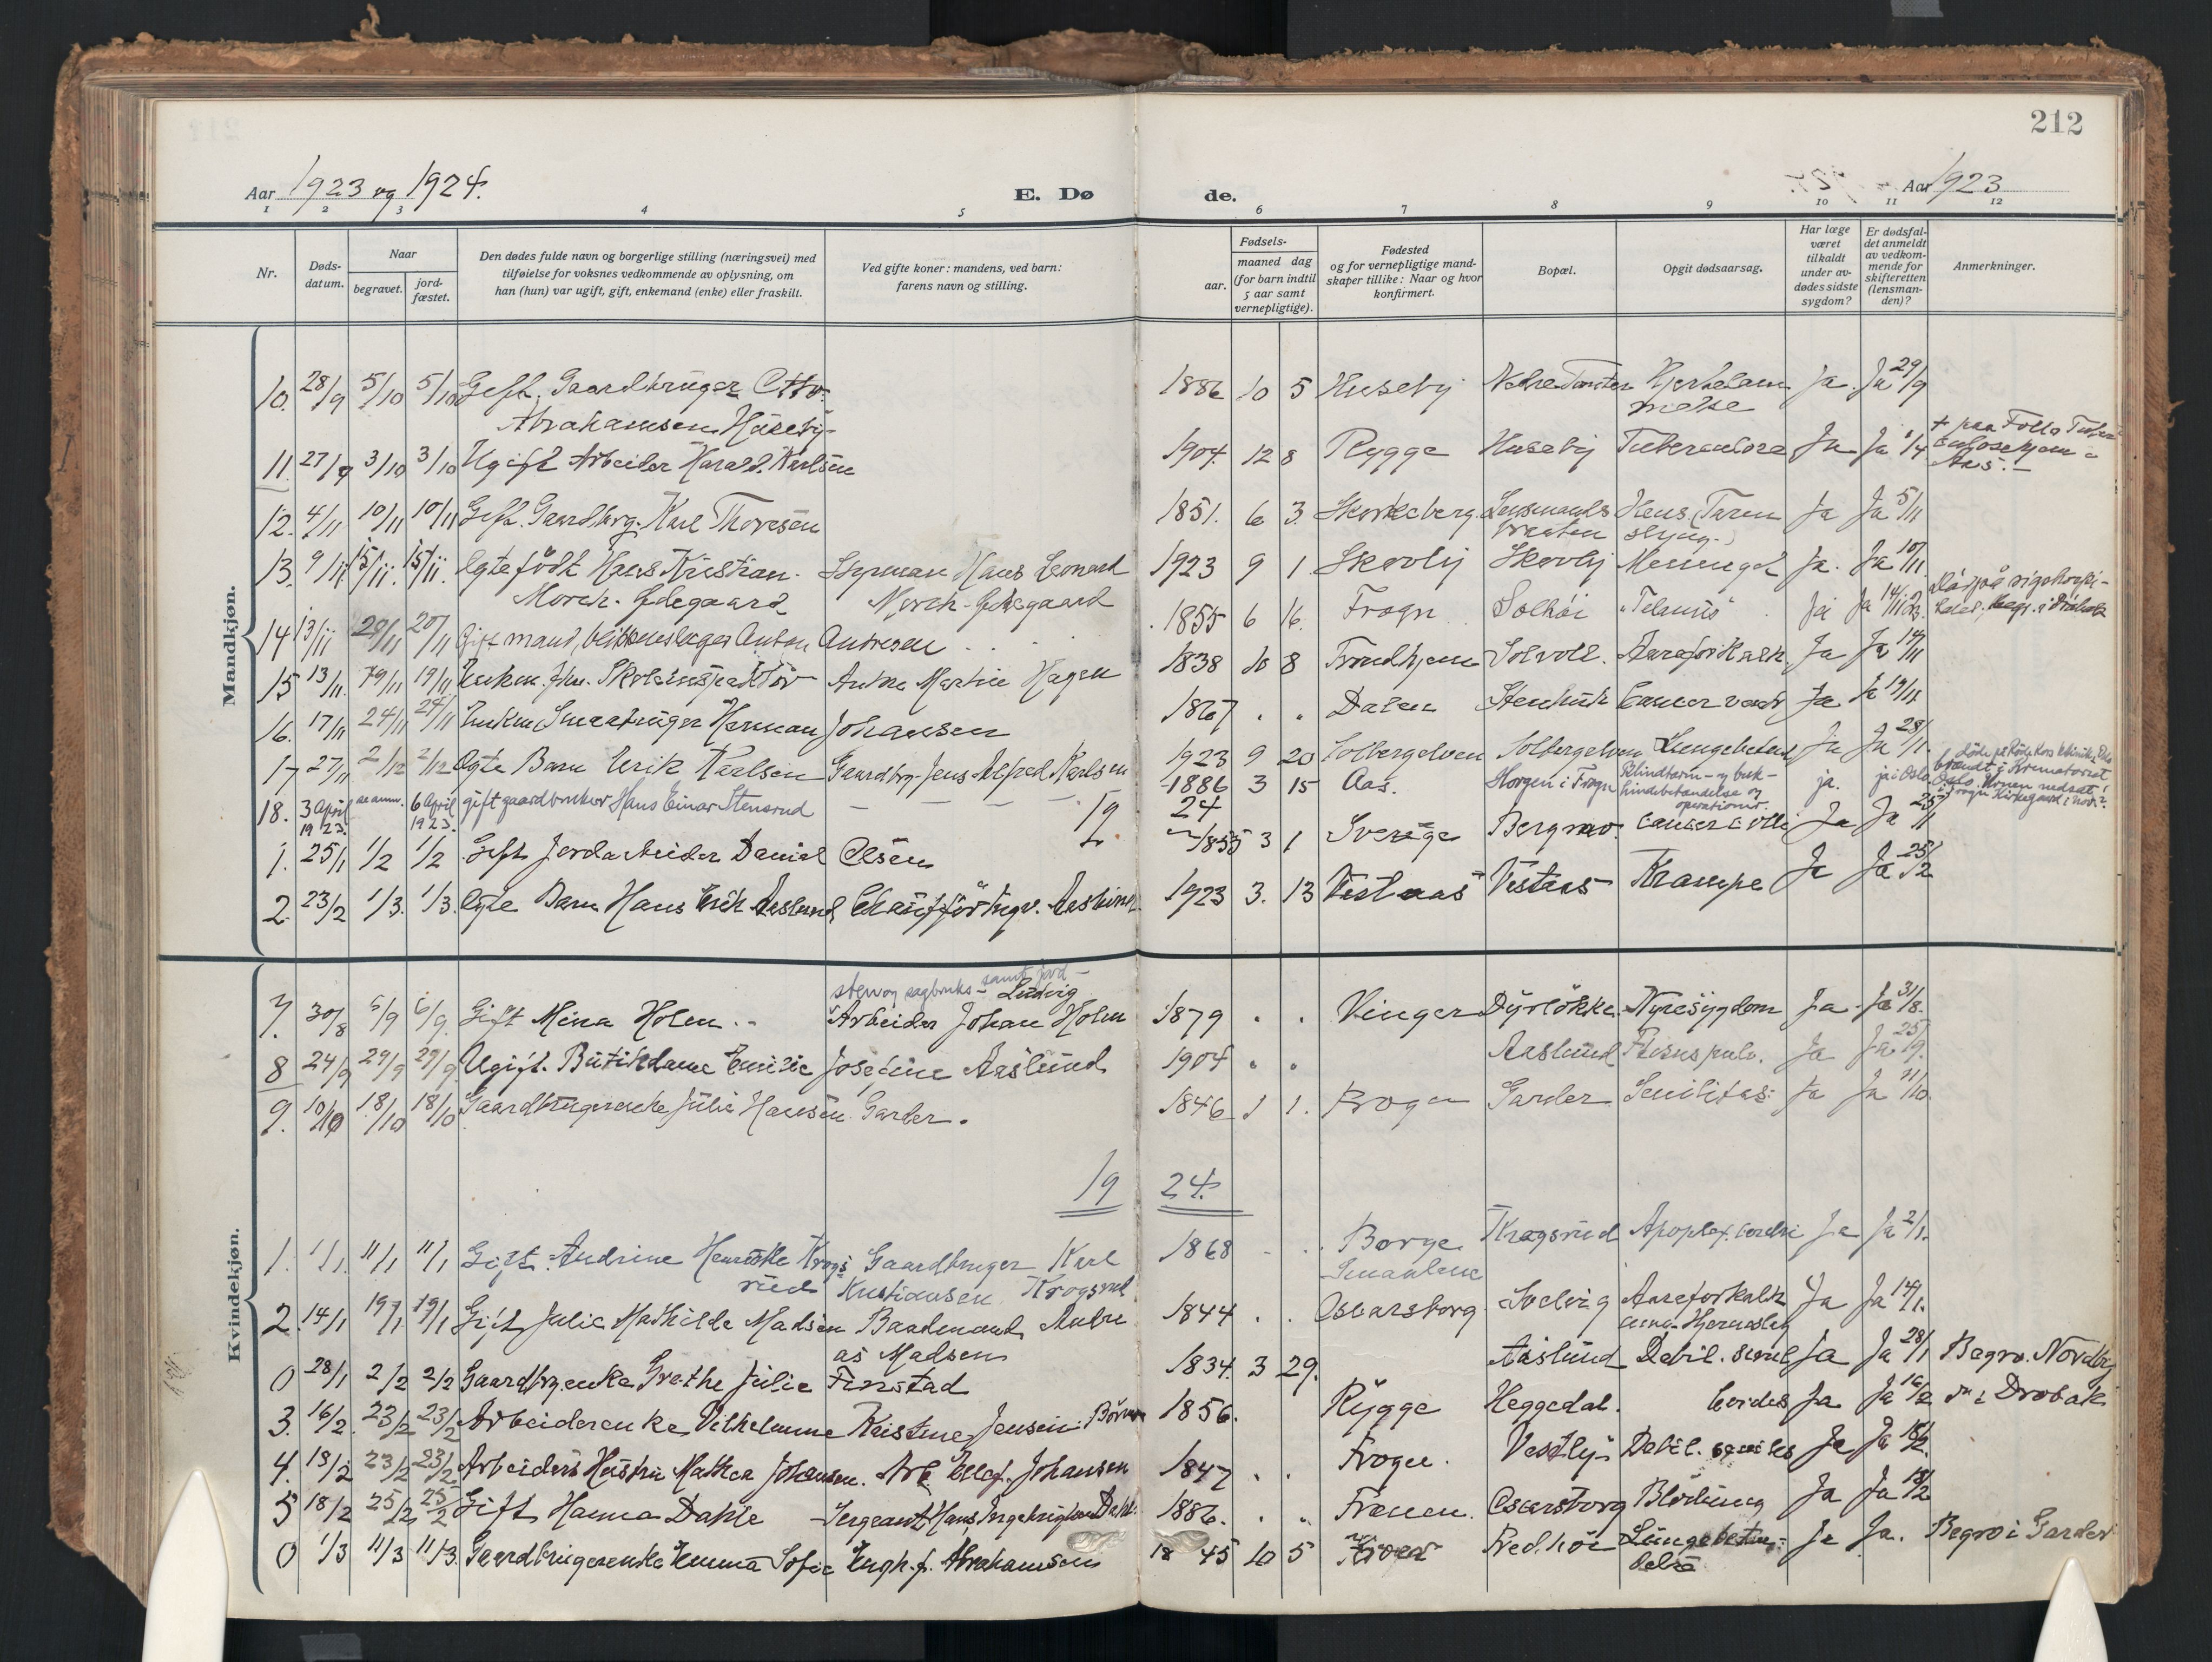 212
Aar 1923 og 1924.
E. Døde.
Aar 1923
1 2 3 4 5 6 7 8 9 10 11 12
Nr.
Døds-datum.
Naar
begravet.
jord-fæstet.
Den dødes fulde navn og borgerlige stilling (næringsvei) med
tilføielse for voksnes vedkommende av oplysning, om
han (hun) var ugift, gift, enkemand (enke) eller fraskilt.
Ved gifte koner: mandens, ved barn:
farens navn og stilling.
Fødsels-
aar.
maaned dag
(for barn indtil
5 aar samt
vernepligtige).
Fødested
og for vernepligtige mand-
skaper tillike: Naar og hvor
konfirmert.
Bopæl.
Opgit dødsaarsag.
Har læge
været
tilkaldt
under av-
dødes sidste
sygdom?
Er dødsfal-
det anmeldt
av vedkom-
mende for
skifteretten
(lensman-
den)?
Anmerkninger.
Mandkjøn.
10. 28/9 5/10 5/10 Gift. Gaardbruger Otto 1886 10 5 Huseby Nedre Ja. Ja 29/9
Abrahamsen Huseby
11. 27/9 3/10 3/10 Ugift Arbeider Harald Karlsen 1904. 12 8 Rygge Huseby Tuberculose Ja Ja + paa Follo
Aas.
12. 4/11 10/11 10/11 Gift. Gaardbrg. Karl Thoresen 1851. 6 3. Skorkeberg. Lensmands Ja Ja 5/11
braaten slyng.
13. 9/11 15/11. 15/11. Ægtefødt Hans Kristian. Styrman Hans Leonard 1923 9 1 Skovly Skovly Meningit Ja. Ja 10/11.
Morch-Ødegaard Morch-Ødegaard
14 13/11 20/11 20/11 Gift mand, blikkenslager Anton Andresen 1855 6 16. Frogn Solhøi "Tetanus" Ja Ja 14/11
15 13/11. 19/11 19/11 Enkem. fhv. Skoleinspektør Andre Martin Hagen 1838 10 8 Trondhjem Solvoll. Aareforkalk. Ja Ja 14/11
16. 17/11 24/11 24/11 Enkem Smaabruger Herman Johansen 1867 . . Dalen Cancer Ja Ja 19/11.
17 27/11 2/12 2/12 Ægte Barn Erik Karlsen Gaardbrg. Jens Alfred Karlsen 1923 9 20 Solbergelven Solbergelven Lungebetend Ja Ja 28/11.
18. 3 April 1923. se anm. 6 April 1923. gift gaardbruker Hans Einar Stensrud 1886 3 15 Aas. Horgen i Frogn Blindtarm- og buk-
hindebetændelse og
operationer. ja. ja i Oslo. brændt i Krematoriet
Oslo. Urnen nedsat
i Frogn Kirkegaard
19 24
1. 25/1 1/2 1/2 Gift Jordarbeider Daniel Olsen 1855 3 1 Sverige Bergmo. Ja Ja 25/1
2. 23/2 1/3. 1/3. Ægte Barn Hans Erik Aaslund, Chauffør 1923 3. 13 Vestaas Vestaas Krampe Ja Ja 25/2
Kvindekjøn.
sten og sagbruks- samt jord-
Ludvig
7. 30/8 5/9 6/9. Gift Mina Holm Arbeider Johan Holm 1879 . . Vinger Dyrløkke. Nyresygdom Ja. Ja 31/8.
8 24/9 29/9 29/9 Ugift. Butikdame Emilie Josefine Aaslund 1904 . . Aaslund Ja Ja 25/9.
9. 10/10 18/10 18/10 Gaardbrugerenke Julie Hansen Garder. 1846 1 1. Frogn Garder Senilitas: Ja Ja 11/10
19 24.
1. 1/1. 11/1 11/1 Gift. Andrine Henriette Krogs Gaardbruger Karl 1868 . . Borge Krogsrud Apoplex. cerebri Ja Ja 2/1.
rud Kristiansen Krogsrud Smaalene
2. 14/1 19/1 19/1 Gift Julie Mathilde Madsen Baadsmand Andre 1844 . . Oscarsborg Solvig Aareforkalk Ja Ja 14/1.
as Madsen
0 28/1 2/2 2/2 Gaardbrgenke Grethe Julie Finstad 1834. 3 29. Aaslund Debil. senil Ja Ja 28/1 Begrv. Nordby
3. 16/2. 23/2 23/2 Arbeiderenke Vilhelmine Kristine Jensen 1856. Rygge Heggedal. Cordis Ja Ja 16/2 i Drøbak
4. 13/2 23/2 23/2 Arbeiders Hustru Mathea Johansen. Arb. Ellef. Johansen 1847 . . Frogn. Vestby Debil. senilis Ja Ja
5 18/2 25/2 25/2 Gift Hanna Dahle Sergeant Hans 1886. . . Oscarsborg Blødning Ja Ja 18/2
0 1/3 11/3 11/3. Gaardbrugerenke Emma Sofie Engh. f. Abrahamsen 18 45 10 5 Lungebetæn- Ja Ja. Begrv i Garder
delse